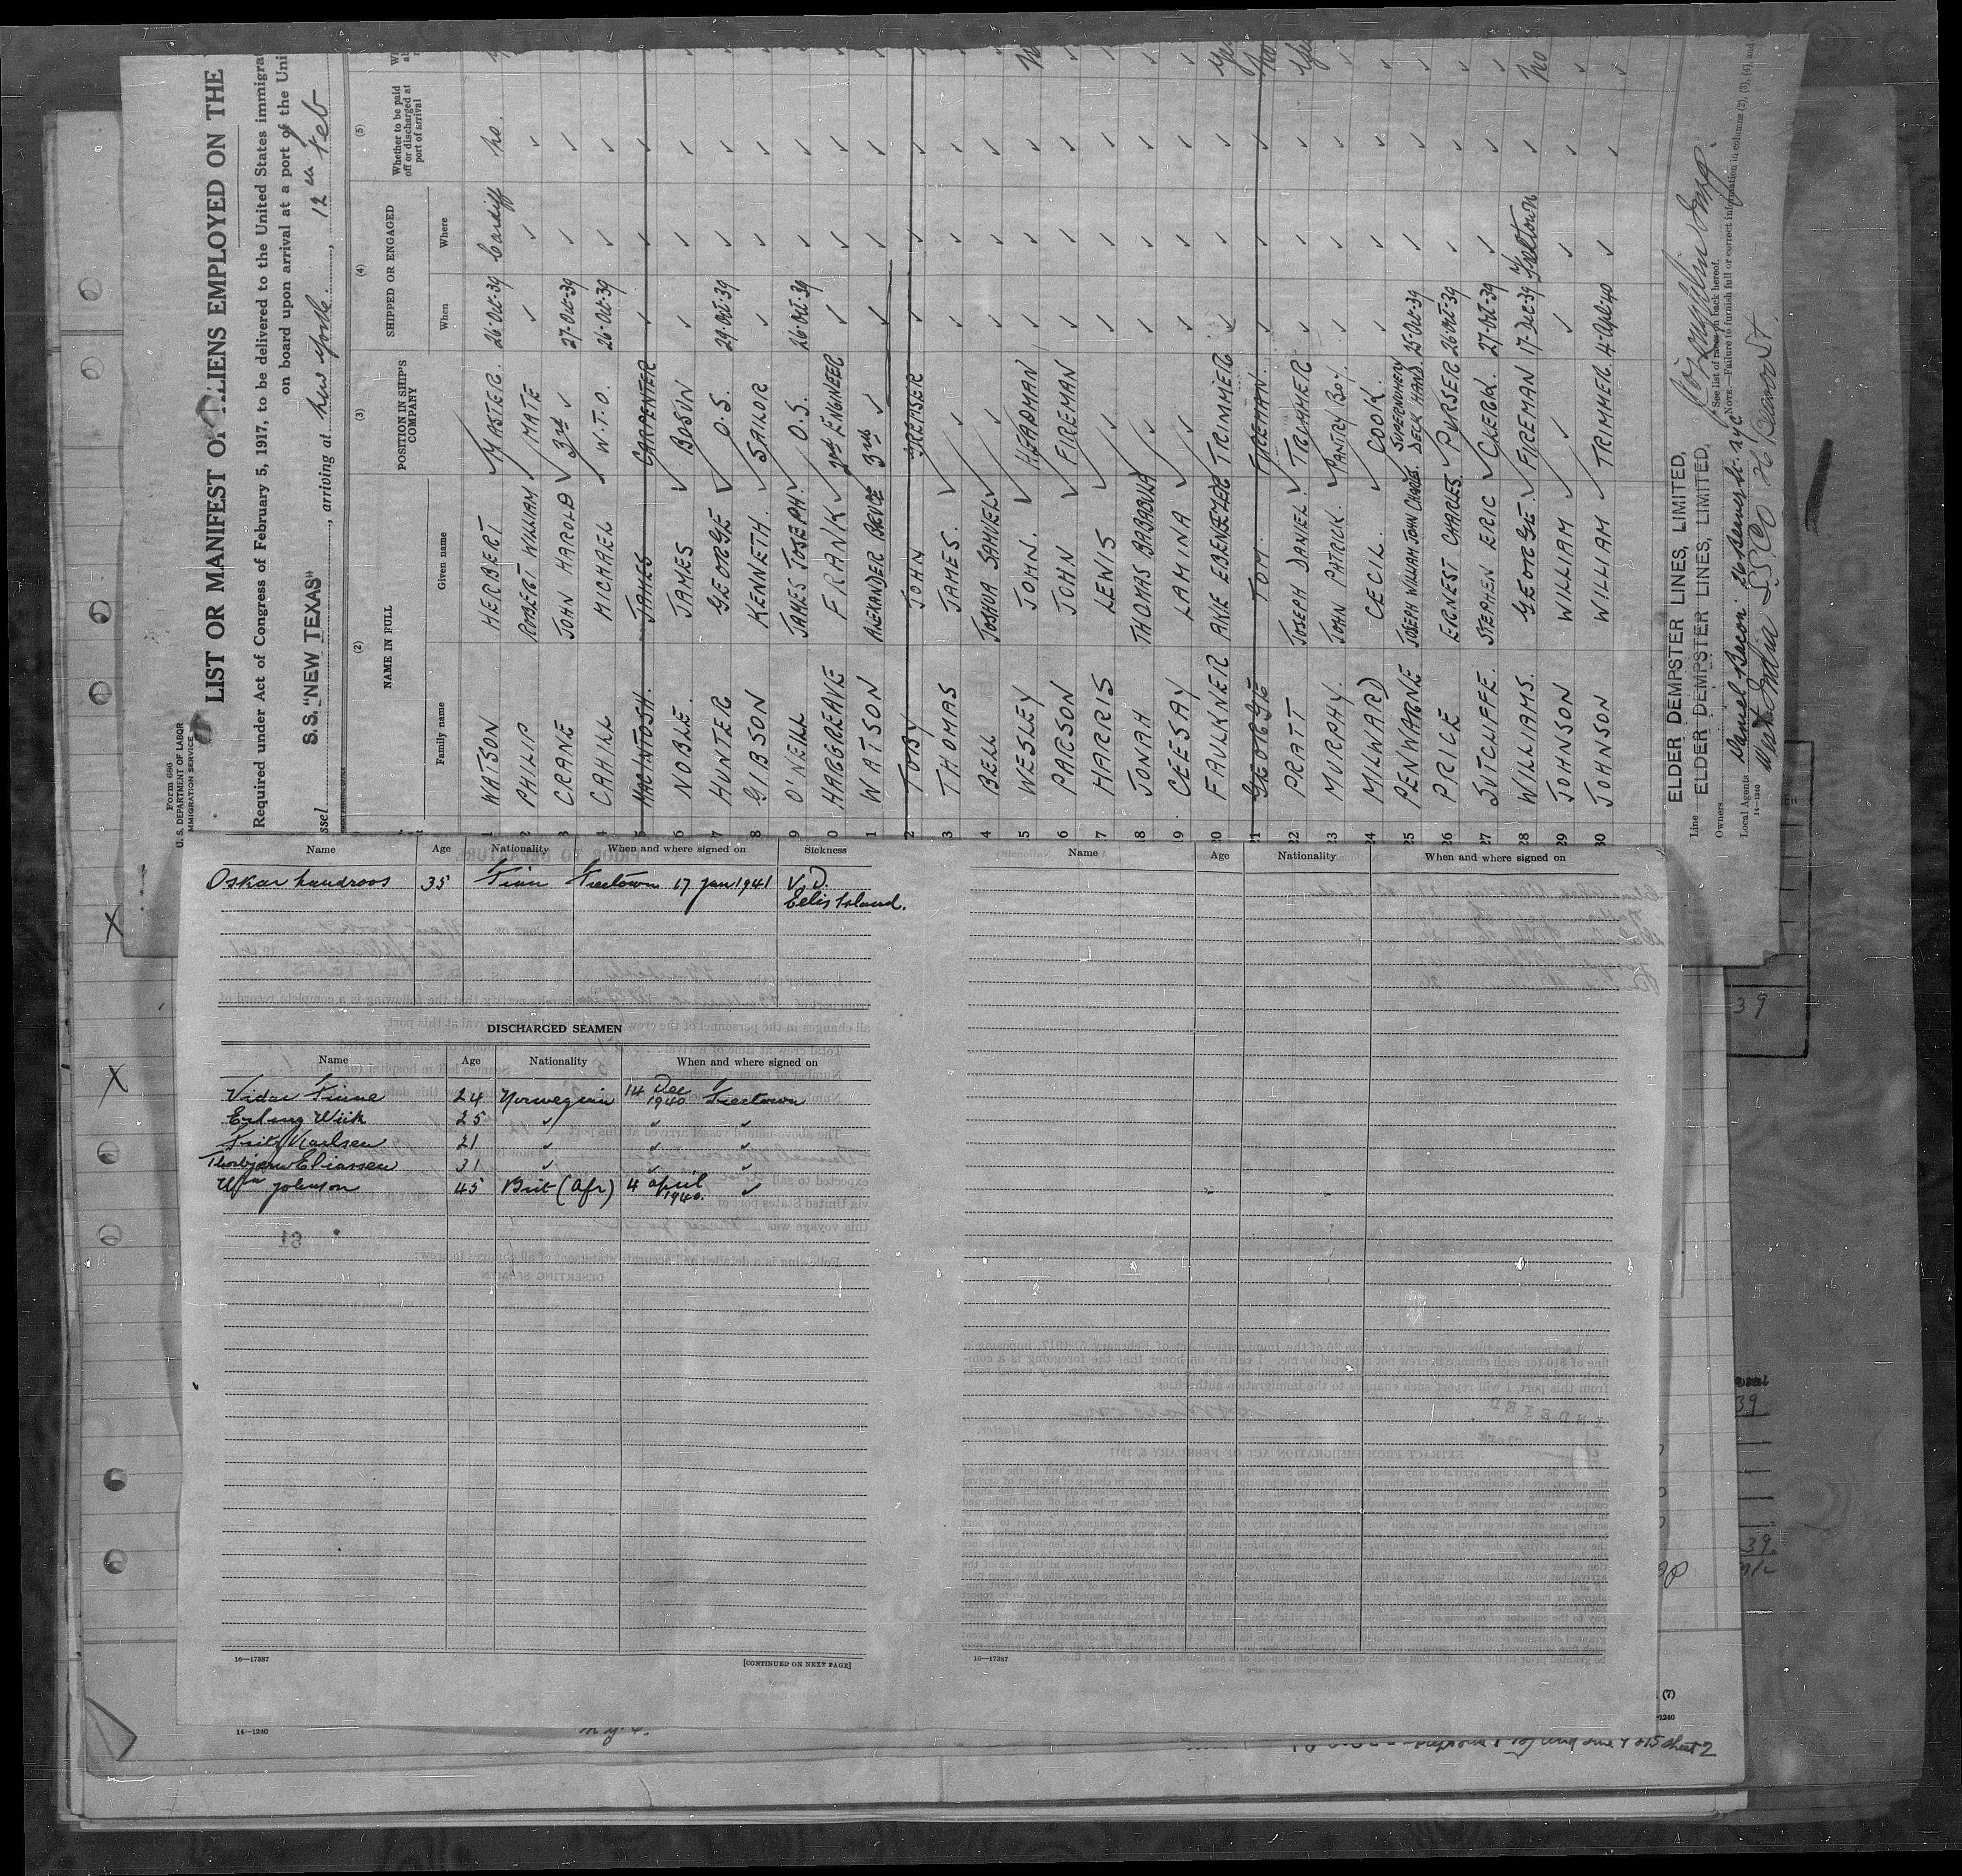 Form 686
U. S. DEPARTMENT OF LABOR
IMMIGRATION SERVICE
LIST OR MANIFEST OF ALIENS EMPLOYED ON THE
Required under Act of Congress of February 5, 1917, to be delivered to the United States immigra
on board upon arrival at a port of the Uni
ssel S.S. "NEW TEXAS", arriving at New York, 12th Feb
(2) (3) (4) (5)
NAME IN FULL POSITION IN SHIP'S COMPANY SHIPPED OR ENGAGED Whether to be paid off or discharged at port of arrival
Family name Given name When Where
1 WATSON HERBERT MASTER. 26-Oct-39 Cardiff No.
2 PHILIP ROBERT WILLIAM MATE ✓ ✓ ✓
3 CRANE JOHN HAROLD 3rd ✓ 27-Oct-39 ✓ ✓
4 CAHILL MICHAEL W.T.O. 26-Oct-39 ✓ ✓
5 MACINTOSH. JAMES CARPENTER ✓ ✓ ✓
6 NOBLE. JAMES BOSUN ✓ ✓ ✓
7 HUNTER GEORGE O.S. 29-Oct-39 ✓ ✓
8 GIBSON KENNETH. SAILOR ✓ ✓ ✓
9 O'NEILL JAMES JOSEPH. O.S. 26-Oct-39 ✓ ✓
0 HARGREAVE FRANK 2nd ENGINEER ✓ ✓ ✓
1 WATSON ALEXANDER BRUCE 3rd ✓ ✓ ✓ ✓
2 TOBY JOHN GREASER ✓ ✓ ✓
3 THOMAS JAMES. ✓ ✓ ✓ ✓
4 BELL JOSHUA SAMUEL ✓ ✓ ✓ ✓
5 WESLEY JOHN. HEADMAN ✓ ✓ ✓
6 PARSON JOHN FIREMAN ✓ ✓ ✓
17 HARRIS LEWIS ✓ ✓ ✓ ✓
18 JONAH THOMAS BABADULA ✓ ✓ ✓ ✓
19 CEESAY LAMINA ✓ ✓ ✓ ✓
20 FAULKNER AKIE EBENEZER TRIMMER ✓ ✓ ✓
21 GEORGE TOM. FIREMAN. ✓ ✓ ✓
22 PRATT JOSEPH DANIEL. TRIMMER ✓ ✓ ✓
23 MURPHY. JOHN PATRICK. PANTRY BOY. ✓ ✓ ✓
24 MILWARD CECIL. COOK. ✓ ✓ ✓
25 PENWARNE JOSEPH WILLIAM JOHN CHARLES. SUPERNUMERY DECK HAND. 25-Oct-39 ✓ ✓
26 PRICE ERNEST CHARLES. PURSER 26-Oct-39 ✓ ✓
27 SUTCLIFFE. STEPHEN ERIC CLERK. 27-Oct-39 ✓ ✓
28 WILLIAMS. GEORGE FIREMAN 17-Dec-39 Freetown ✓
29 JOHNSON WILLIAM ✓ ✓ ✓ ✓
30 JOHNSON WILLIAM TRIMMER. 4-Apl-40 ✓ ✓
Line ELDER DEMPSTER LINES, LIMITED,
Owners ELDER DEMPSTER LINES, LIMITED,
See list of races on back hereof.
Local Agents Daniel Bacon 26 Beaver St. NYC
NOTE.—Failure to furnish full or correct information in columns (2), (3), (4), and
14—1240
Name Age Nationality When and where signed on Sickness
Oskar Landroos 35 Finn Freetown 17 Jan 1941 V.D.
Ellis Island.
DISCHARGED SEAMEN
Name Age Nationality When and where signed on
Vidar Finne 24 Norwegian 14 Dec 1940 Freetown
Erling Wiik 25 ✓ ✓ ✓
Fritz Karlsen 21 ✓ ✓ ✓
Thorbjørn Eliassen 31 ✓ ✓ ✓
Wm Johnson 45 Brit (Afr) 4 April 1940. ✓
16—17387 [CONTINUED ON NEXT PAGE]
Name Age Nationality When and where signed on
16—17387
14—1240